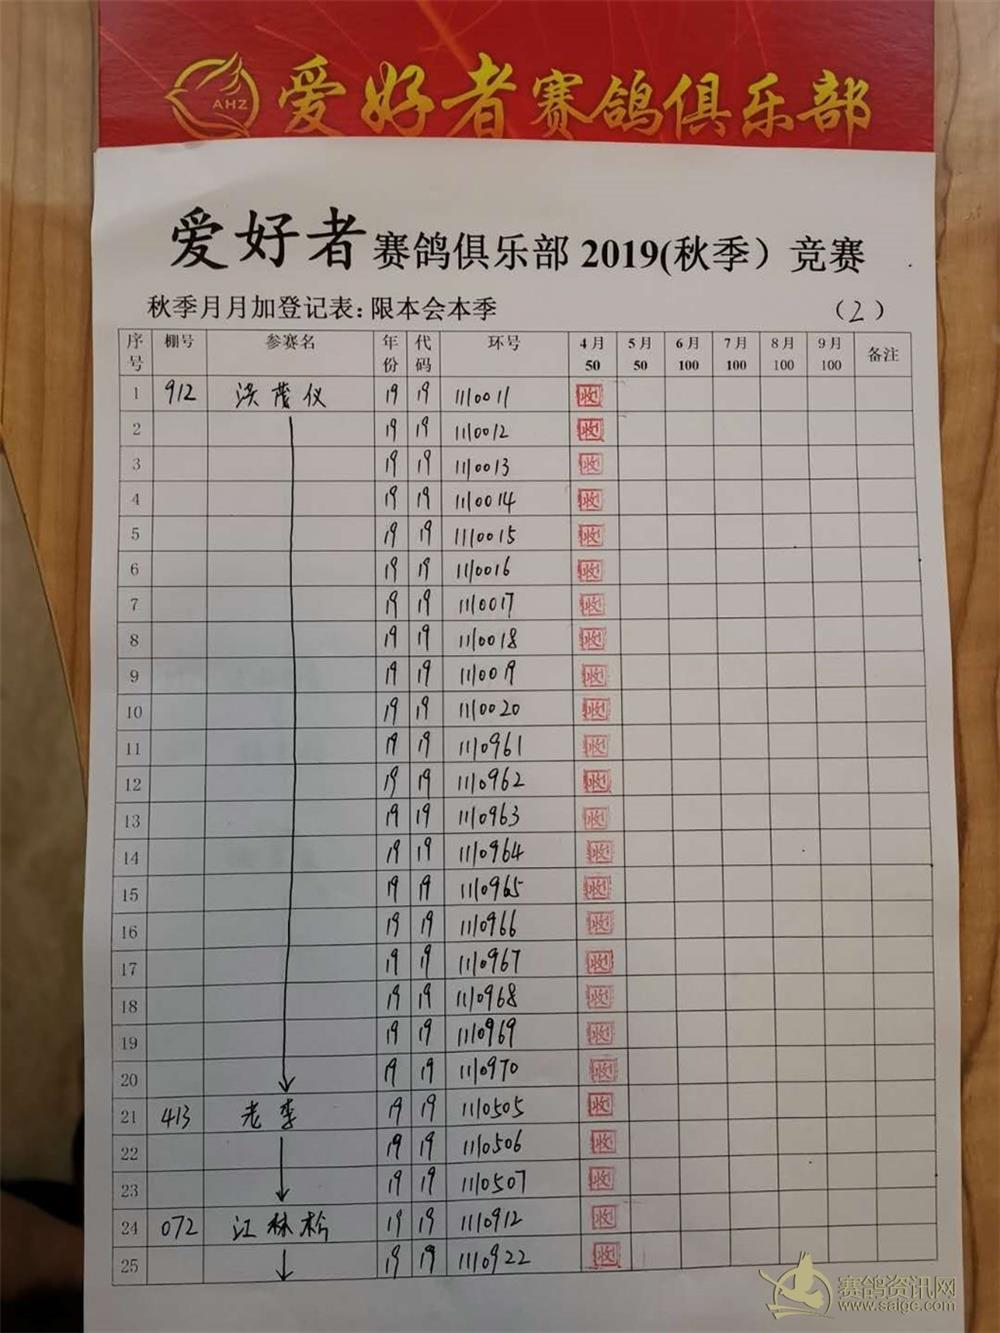 AHZ 爱好者赛鸽俱乐部
爱好者赛鸽俱乐部 2019(秋季）竞赛
秋季月月加登记表：限本会本季 （2）
序号 棚号 参赛名 年份 代码 环号 4月 50 5月 50 6月 100 7月 100 8月 100 9月 100 备注
1 912 洪茂仪 19 19 1110011 收
2 19 19 1110012 收
3 19 19 1110013 收
4 19 19 1110014 收
5 19 19 1110015 收
6 19 19 1110016 收
7 19 19 1110017 收
8 19 19 1110018 收
9 19 19 1110019 收
10 19 19 1110020 收
11 19 19 1110961 收
12 19 19 1110962 收
13 19 19 1110963 收
14 19 19 1110964 收
15 19 19 1110965 收
16 19 19 1110966 收
17 19 19 1110967 收
18 19 19 1110968 收
19 19 19 1110969 收
20 19 19 1110970 收
21 413 老李 19 19 1110505 收
22 19 19 1110506 收
23 19 19 1110507 收
24 072 江林松 19 19 1110912 收
25 19 19 1110922 收
赛鸽资讯网
www.saigc.com